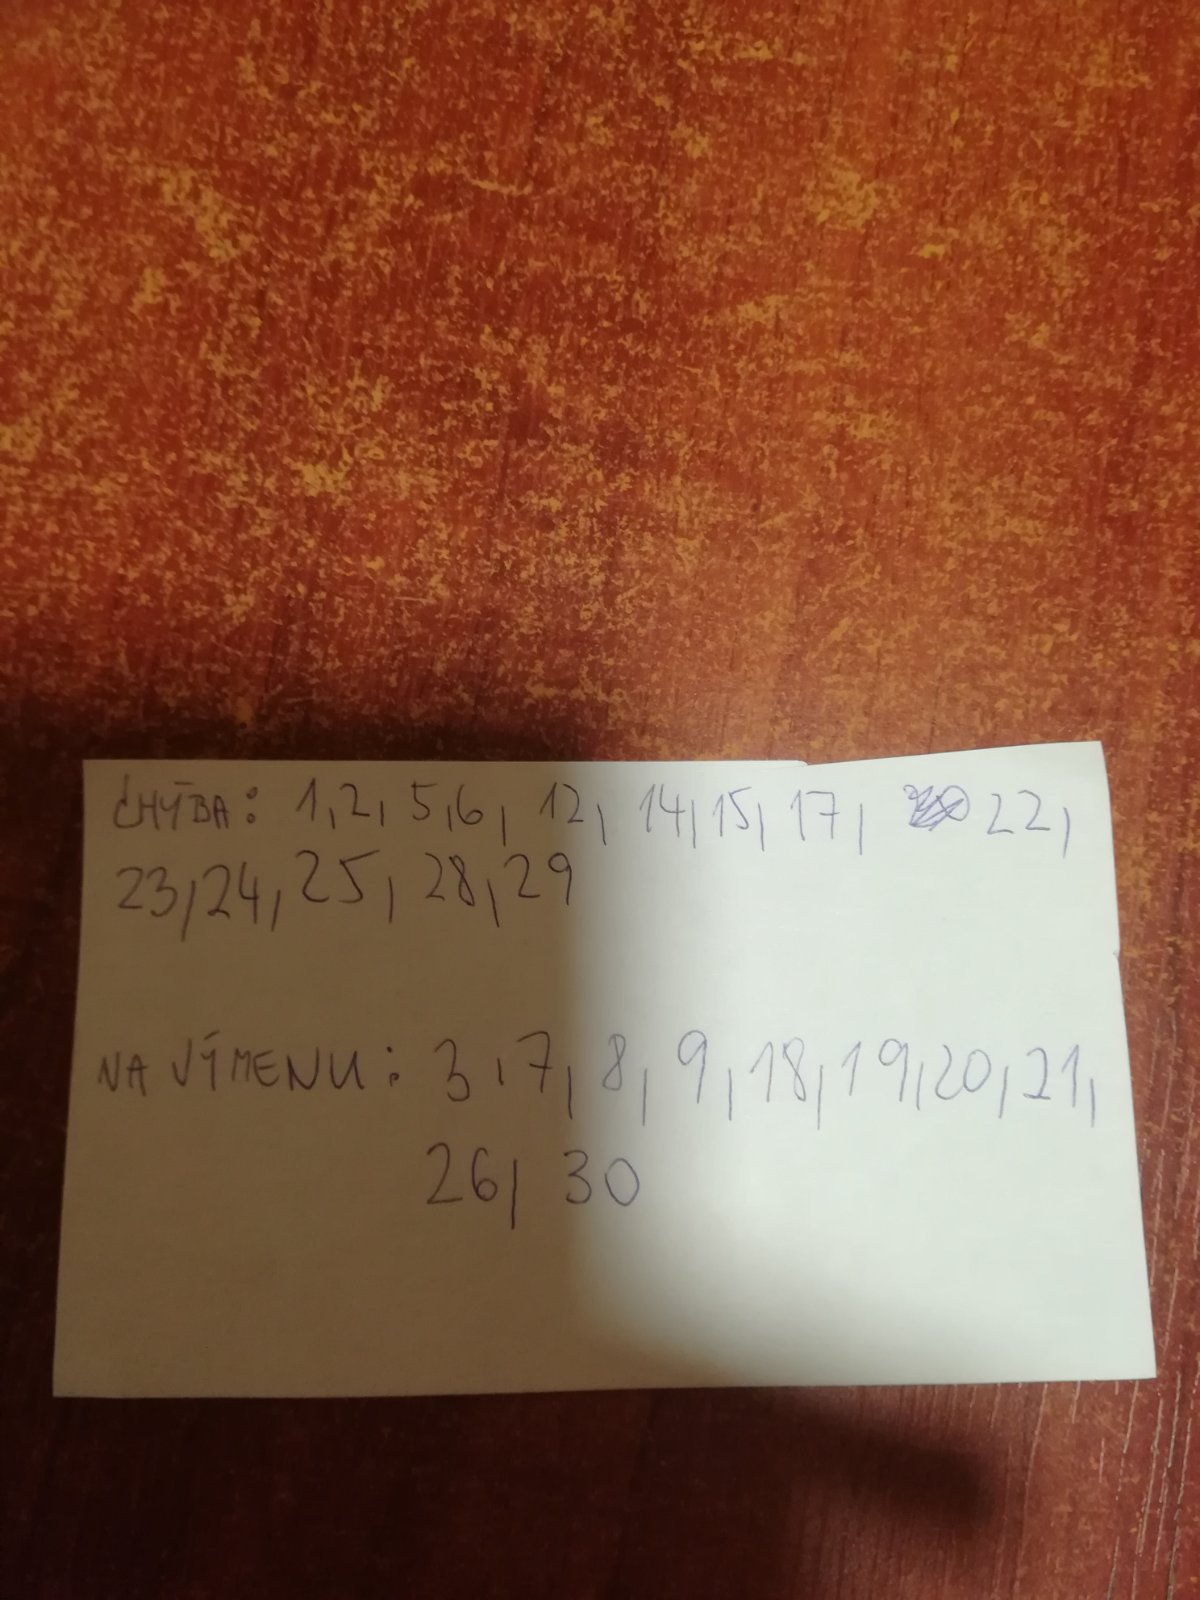 CHÝBA: 1, 2, 5, 6, 12, 14, 15, 17, 22,
23, 24, 25, 28, 29
NA VÝMENU: 3, 7, 8, 9, 18, 19, 20, 21,
26, 30